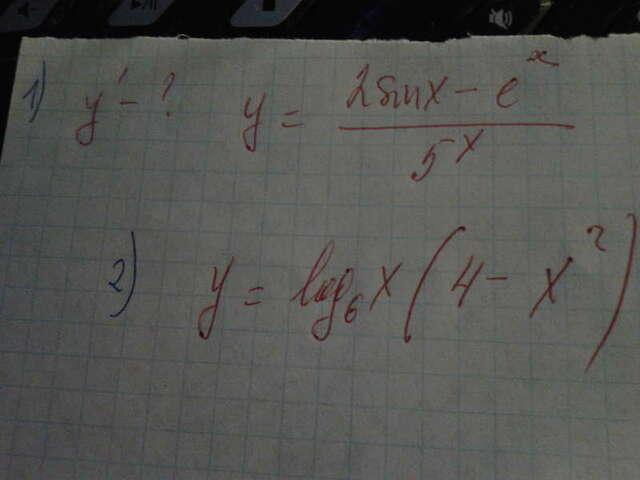 1) y' - ? y = \frac{2 sin x - e^x}{5^x}
2) y = log_6 x (4 - x^2)